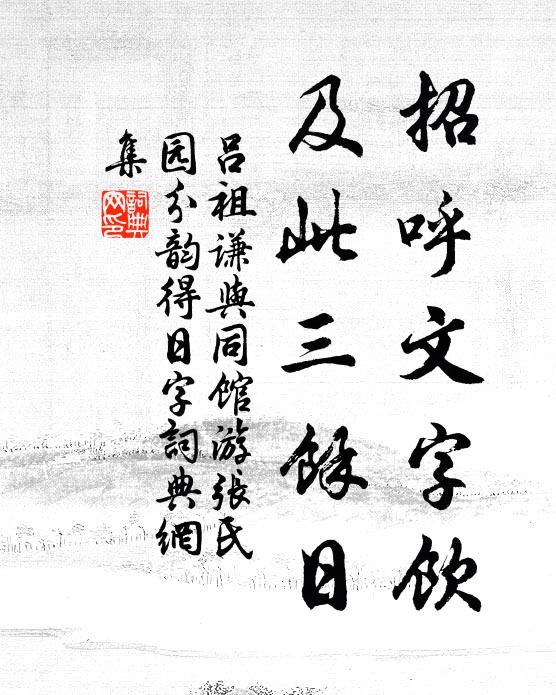 招呼文字饮
及此三餘日
吕祖谦與同馆游張氏
园分韵得日字詞典網
集
詞典
网印